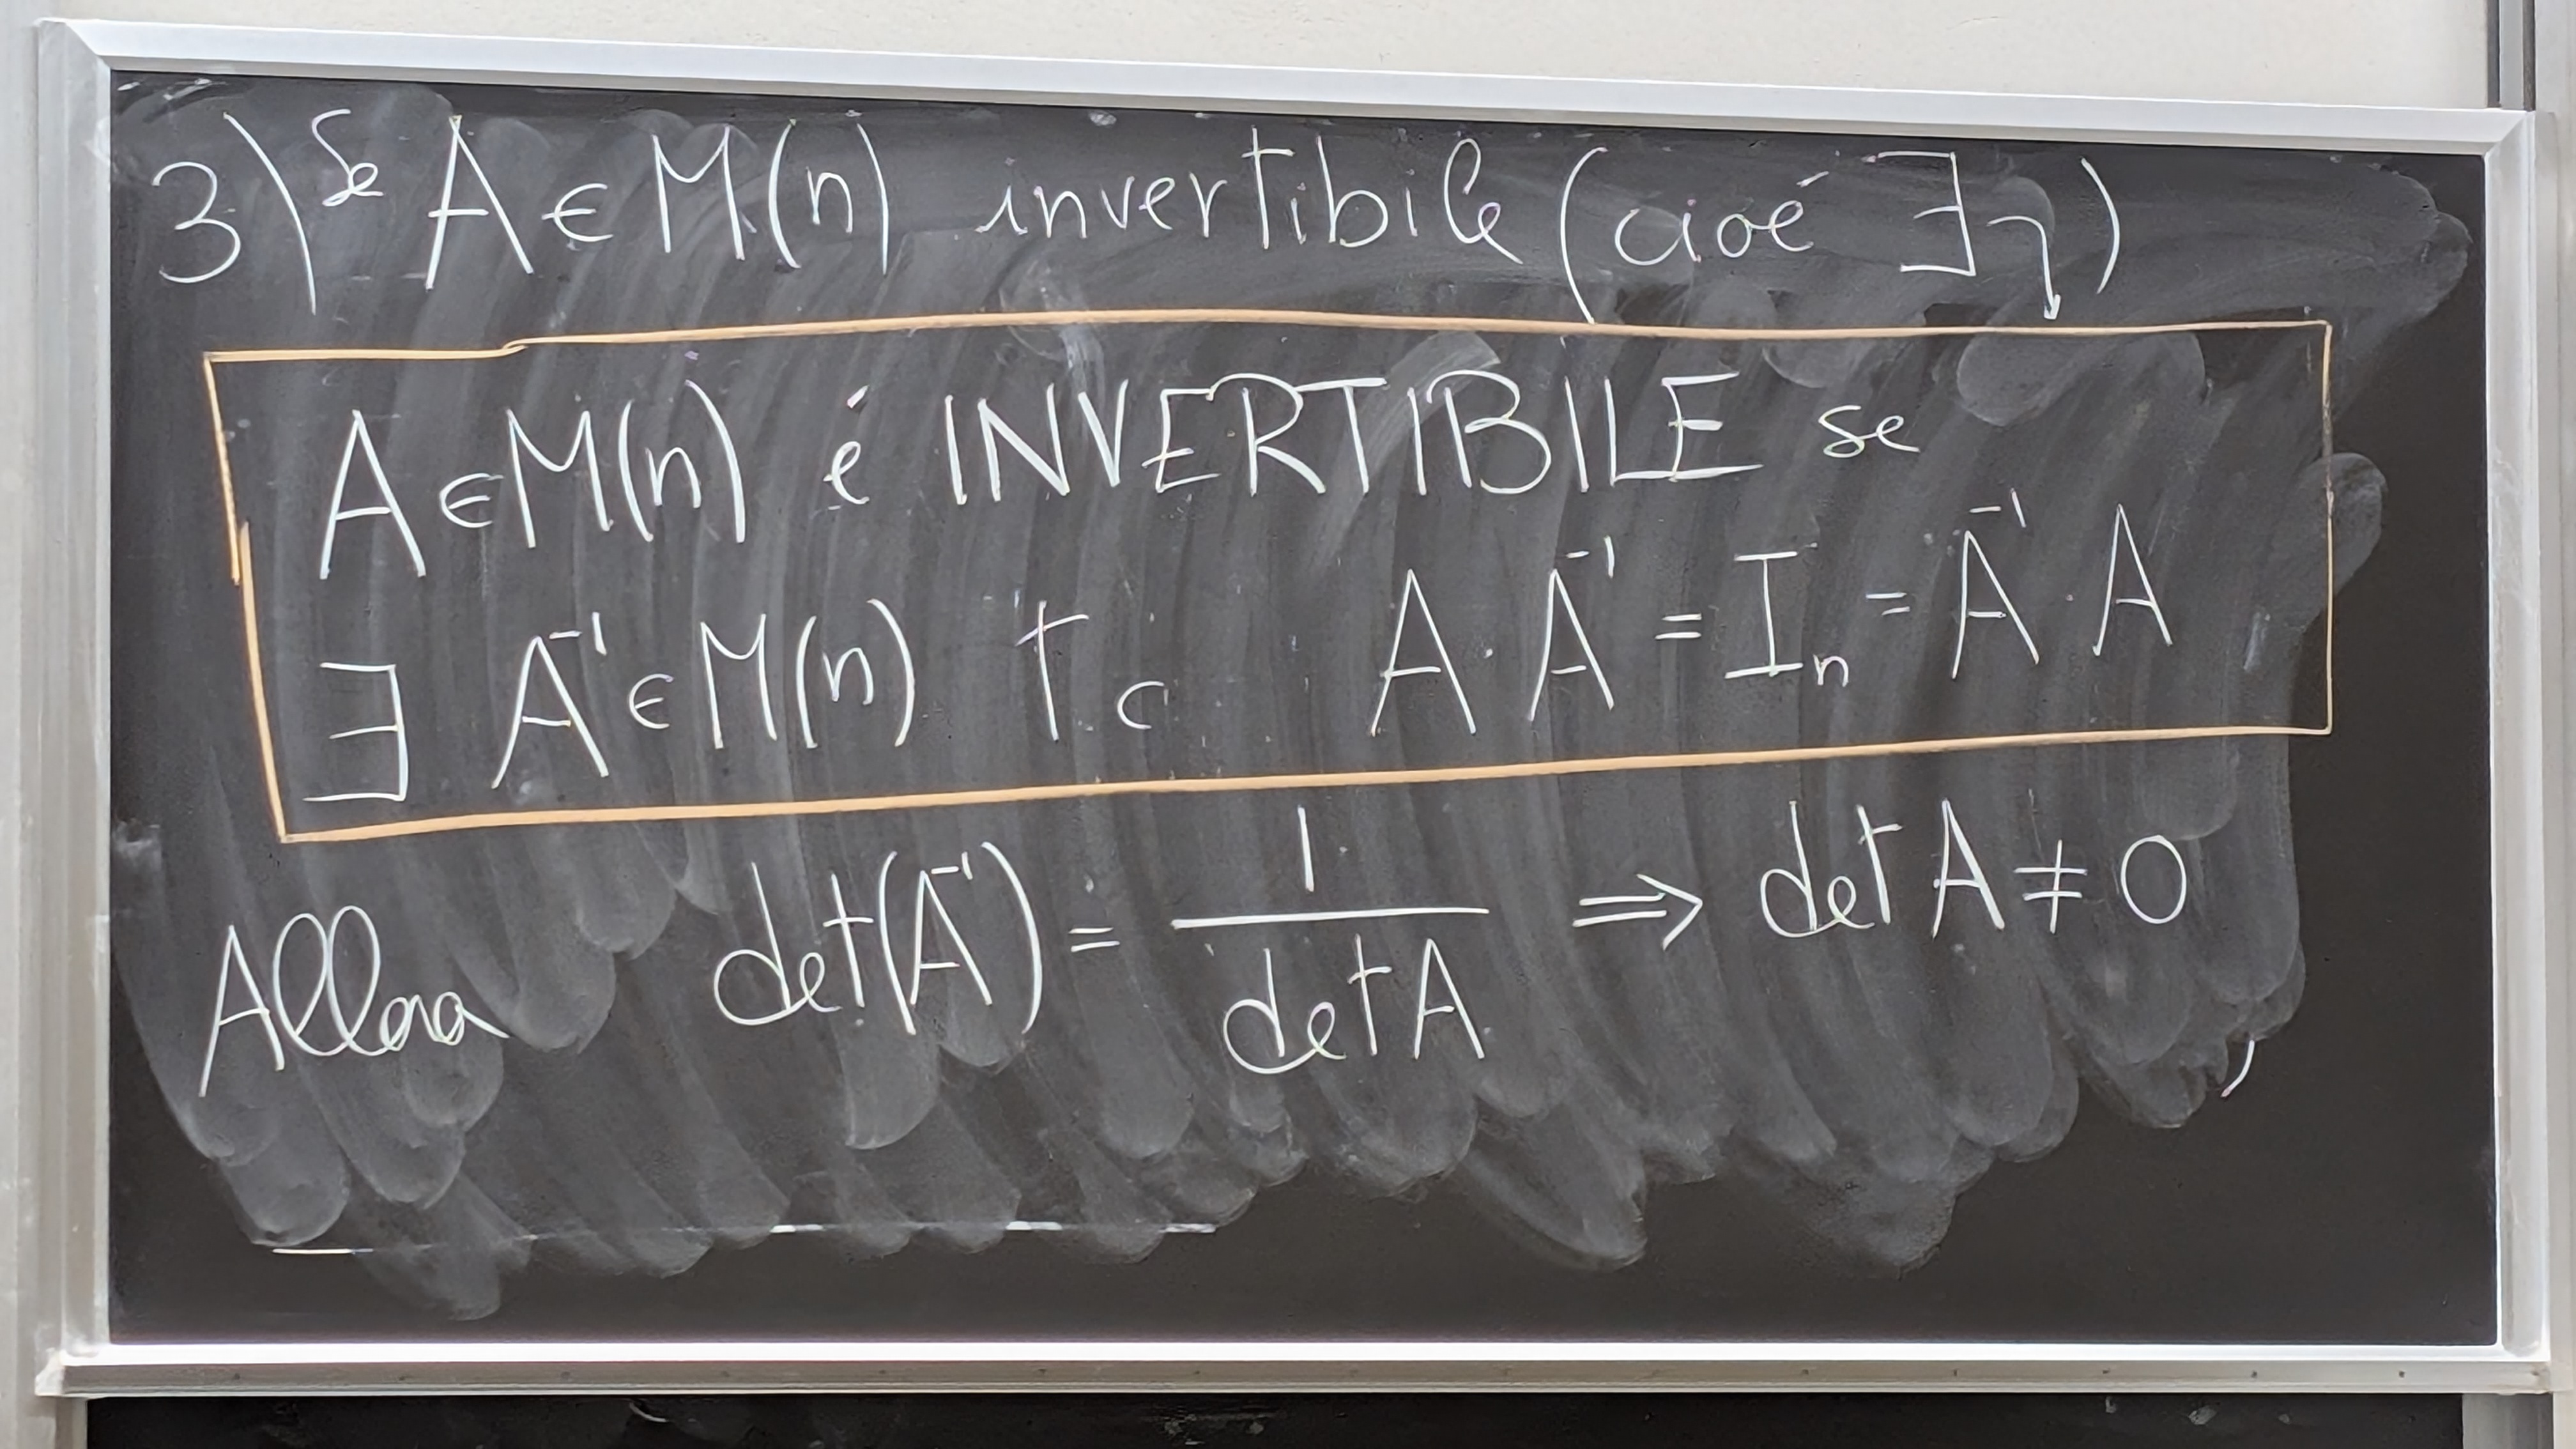 3) Se A ∈ M(n) invertibile (cioé ∃ ↓)
A ∈ M(n) é INVERTIBILE se
∃ A⁻¹ ∈ M(n) t c A · A⁻¹ = Iₙ = A⁻¹ · A
Allora det(A⁻¹) = 1 / det A ⟹ det A ≠ 0